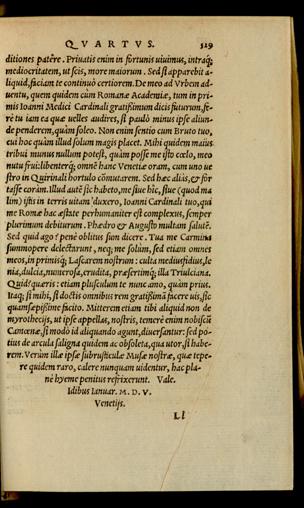 QVARTVS. 329
ditiones patére. Priuatis enim in fortunis uiuimus, intraq;
mediocritatem, ut scis, more maiorum. Sed si apparebit a-
liquid, faciam te continuo certiorem. De meo ad Vrbem ad-
uentu, quem quidem cum Romanæ Academiæ, tum in pri-
mis Ioanni Medici Cardinali gratissimum dicis futurum, fe-
rè tu iam ea quæ uelles audires, si paulò minus ipse aliun-
de penderem, quàm soleo. Non enim sentio cum Bruto tuo,
cui hoc quàm illud solum magis placet. Mihi quidem maius
tribui munus nullum potest, quàm posse me isto cœlo, meo
nutu frui: libenterq; omnē hanc Venetiæ oram, cum uno ue
stro in Quirinali hortulo cōmutarem. Sed hæc aliàs, & for
tasse coràm. Illud autē sic habeto, me siue hîc, siue (quod ma
lim) istis in terris uitam duxero, Ioanni Cardinali tuo, qui
me Romæ hac æstate perhumaniter est complexus, semper
plurimum debiturum. Phædro & Augusto multam salutē.
Sed quid ago? penè oblitus sum dicere. Tua me Carmina
summopere delectarunt, neq; me solùm, sed etiam omnes
meos, in primisq; Lascarem nostrum: culta mediusfidius, le
nia, dulcia, numerosa, erudita, præsertimq; illa Triulciana.
Quid? quæris: etiam plusculum te nunc amo, quàm prius.
Itaq; si mihi, si doctis omnibus rem gratissimā facere uis, sic
quamsæpissime facito. Mitterem etiam tibi aliquid non de
myrothecijs, ut ipse appellas, nostris, temerè enim nobiscū
Camenæ, si modò id aliquando agunt, diuersantur: sed po-
tius de arcula saligna quidem ac obsoleta, qua utor, si habe-
rem. Verùm illæ ipsæ subrusticulæ Musæ nostræ, quæ tepe-
re quidem raro, calere nunquam uidentur, hac pla-
nè hyeme penitus refrixerunt. Vale.
Idibus Ianuar. M. D. V.
Venetijs.
Ll